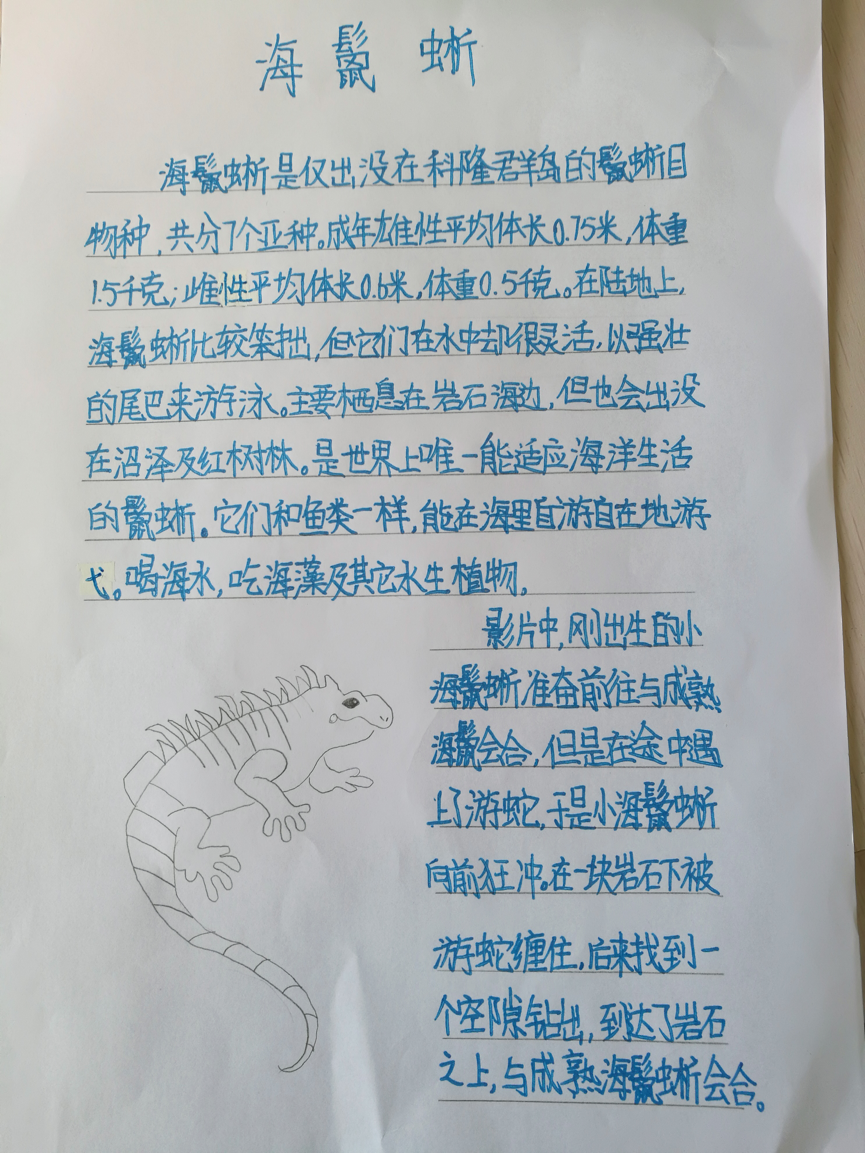 海鬣蜥
海鬣蜥是仅出没在科隆群岛的鬣蜥目
物种，共分7个亚种。成年雄性平均体长0.75米，体重
1.5千克；雌性平均体长0.6米，体重0.5千克。在陆地上，
海鬣蜥比较笨拙，但它们在水中却很灵活，以强壮
的尾巴来游泳。主要栖息在岩石海边，但也会出没
在沼泽及红树林。是世界上唯一能适应海洋生活
的鬣蜥。它们和鱼类一样，能在海里自游自在地游
弋。喝海水，吃海藻及其它水生植物。
影片中，刚出生的小
海鬣蜥准奋前往与成熟
海鬣会合，但是在途中遇
上了游蛇，于是小海鬣蜥
向前狂冲。在一块岩石下被
游蛇缠住，后来找到一
个空隙钻出，到达了岩石
之上，与成熟海鬣蜥会合。